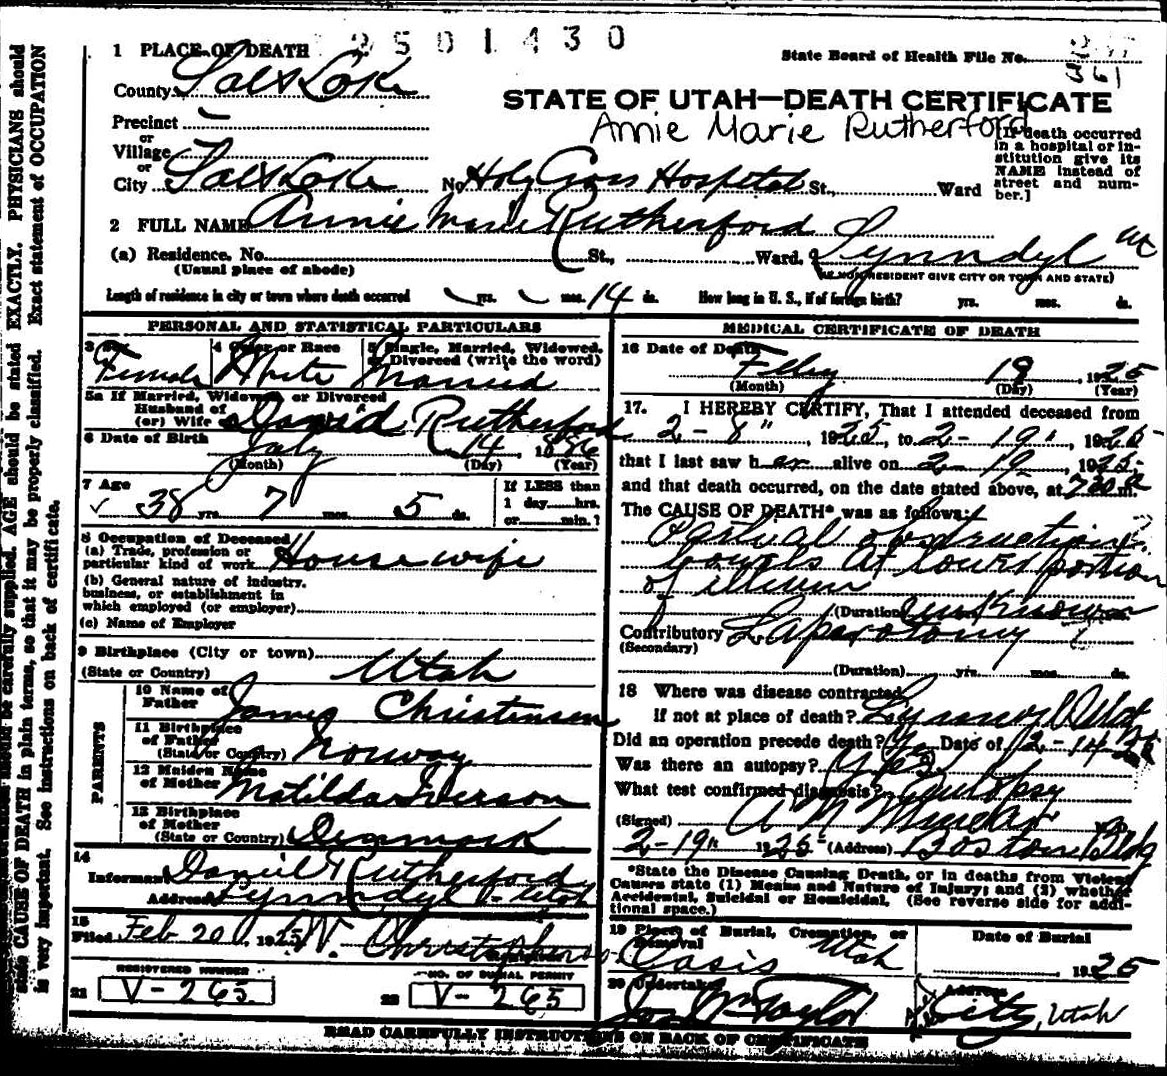 2501430
1 PLACE OF DEATH
State Board of Health File No.
361
County Salt Lake
STATE OF UTAH—DEATH CERTIFICATE
Precinct
Annie Marie Rutherford
or
Village
or
City Salt Lake No Holy Cross Hospital St., Ward
[If death occurred
in a hospital or in-
stitution give its
NAME instead of
street and num-
ber.]
2 FULL NAME Annie Marie Rutherford
(a) Residence. No. St., Ward. Lynndyl Ut
(Usual place of abode) (If NONRESIDENT GIVE CITY OR TOWN AND STATE)
Length of residence in city or town where death occurred yrs. mos. 14 ds. How long in U. S., if of foreign birth? yrs. mos. ds.
PERSONAL AND STATISTICAL PARTICULARS
3 Sex 4 Color or Race 5 Single, Married, Widowed,
or Divorced (write the word)
Female White Married
5a If Married, Widowed or Divorced
Husband of
(or) Wife of David Rutherford
6 Date of Birth July 14, 1886
(Month) (Day) (Year)
7 Age
38 yrs. 7 mos. 5 ds.
If LESS than
1 day hrs.
or min.?
8 Occupation of Deceased
(a) Trade, profession or
particular kind of work Housewife
(b) General nature of industry,
business, or establishment in
which employed (or employer)
(c) Name of Employer
9 Birthplace (City or town)
(State or Country) Utah
PARENTS
10 Name of
Father James Christensen
11 Birthplace
of Father
(State or Country) Norway
12 Maiden Name
of Mother Matilda Iverson
13 Birthplace
of Mother
(State or Country) Denmark
14
Informant Daniel Rutherford
Address Lynndyl Utah
15
Filed Feb 20, 1925 W. Christopherson
REGISTERED NUMBER
21 V-265
NO. OF BURIAL PERMIT
22 V-265
MEDICAL CERTIFICATE OF DEATH
16 Date of Death
Feby 19, 1925
(Month) (Day) (Year)
17. I HEREBY CERTIFY, That I attended deceased from
2-8", 1925, to 2-19", 1925
that I last saw her alive on 2-19, 1925
and that death occurred, on the date stated above, at 7:30 a m.
The CAUSE OF DEATH* was as follows:
Partial obstruction
bowels at lower portion
of illeum
(Duration) unknown
Contributory Laparotomy
(Secondary)
(Duration) yrs. mos. ds.
18 Where was disease contracted
If not at place of death? Lynndyl Utah
Did an operation precede death? Yes Date of 2-14-25
Was there an autopsy? Yes
What test confirmed diagnosis? Autopsy
(Signed) A M
2-19", 1925 (Address) Boston Bldg
*State the Disease Causing Death, or in deaths from Violent
Causes state (1) Means and Nature of Injury; and (2) whether
Accidental, Suicidal or Homicidal. (See reverse side for addi-
tional space.)
19 Place of Burial, Cremation, or
Removal
Oasis Utah
Date of Burial
1925
20 Undertaker Address
Taylor City, Utah
READ CAREFULLY INSTRUCTIONS ON BACK OF CERTIFICATE
carefully supplied. AGE should be stated EXACTLY. PHYSICIANS should
state CAUSE OF DEATH in plain terms, so that it may be properly classified. Exact statement of OCCUPATION
is very important. See instructions on back of certificate.